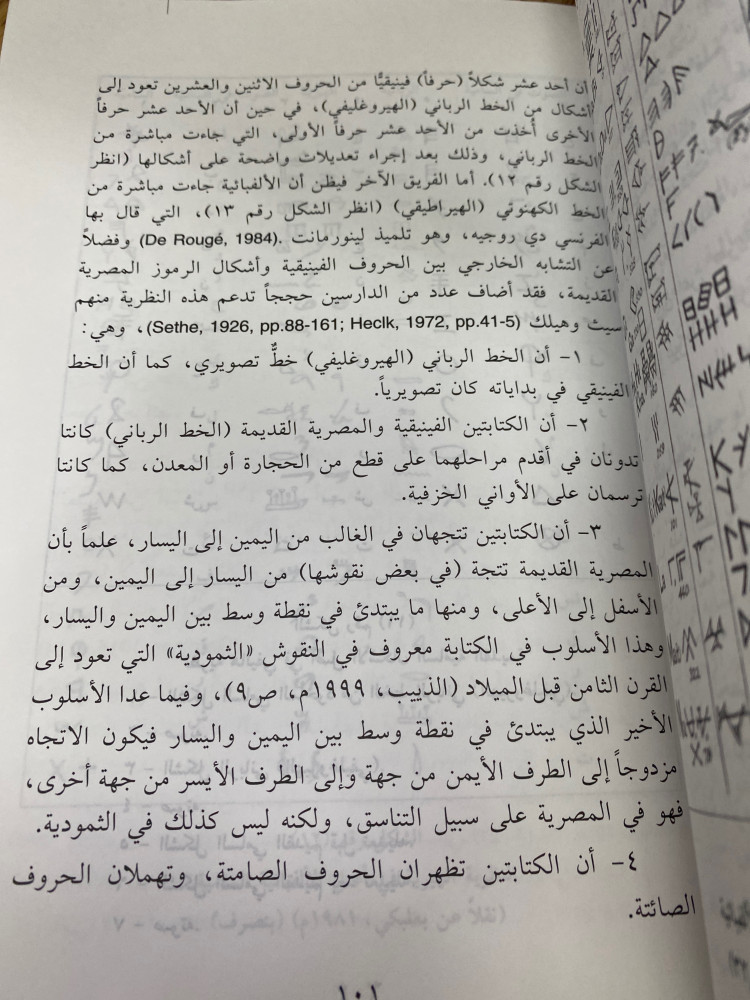 أن أحد عشر شكلاً (حرفاً) فينيقيًّا من الحروف الاثنين والعشرين تعود إلى
أشكال من الخط الرباني (الهيروغليفي)، في حين أن الأحد عشر حرفاً
الأخرى أُخذت من الأحد عشر حرفاً الأولى، التي جاءت مباشرة من
الخط الرباني، وذلك بعد إجراء تعديلات واضحة على أشكالها (انظر
الشكل رقم ١٢). أما الفريق الآخر فيظن أن الألفبائية جاءت مباشرة من
الخط الكهنوتي (الهيراطيقي) (انظر الشكل رقم ١٣)، التي قال بها
الفرنسي دي روجيه، وهو تلميذ لينورمانت .(De Rougé, 1984) وفضلاً
عن التشابه الخارجي بين الحروف الفينيقية وأشكال الرموز المصرية
القديمة، فقد أضاف عدد من الدارسين حججاً تدعم هذه النظرية منهم
سيث وهيلك (Sethe, 1926, pp.88-161; Heclk, 1972, pp.41-5)، وهي:
١- أن الخط الرباني (الهيروغليفي) خطٌّ تصويري، كما أن الخط
الفينيقي في بداياته كان تصويرياً.
٢- أن الكتابتين الفينيقية والمصرية القديمة (الخط الرباني) كانتا
تدونان في أقدم مراحلهما على قطع من الحجارة أو المعدن، كما كانتا
ترسمان على الأواني الخزفية.
٣- أن الكتابتين تتجهان في الغالب من اليمين إلى اليسار، علماً بأن
المصرية القديمة تتجة (في بعض نقوشها) من اليسار إلى اليمين، ومن
الأسفل إلى الأعلى، ومنها ما يبتدئ في نقطة وسط بين اليمين واليسار،
وهذا الأسلوب في الكتابة معروف في النقوش «الثمودية» التي تعود إلى
القرن الثامن قبل الميلاد (الذييب، ١٩٩٩م، ص٩)، وفيما عدا الأسلوب
الأخير الذي يبتدئ في نقطة وسط بين اليمين واليسار فيكون الاتجاه
مزدوجاً إلى الطرف الأيمن من جهة وإلى الطرف الأيسر من جهة أخرى،
فهو في المصرية على سبيل التناسق، ولكنه ليس كذلك في الثمودية.
٤- أن الكتابتين تظهران الحروف الصامتة، وتهملان الحروف
الصائتة.
١٠١